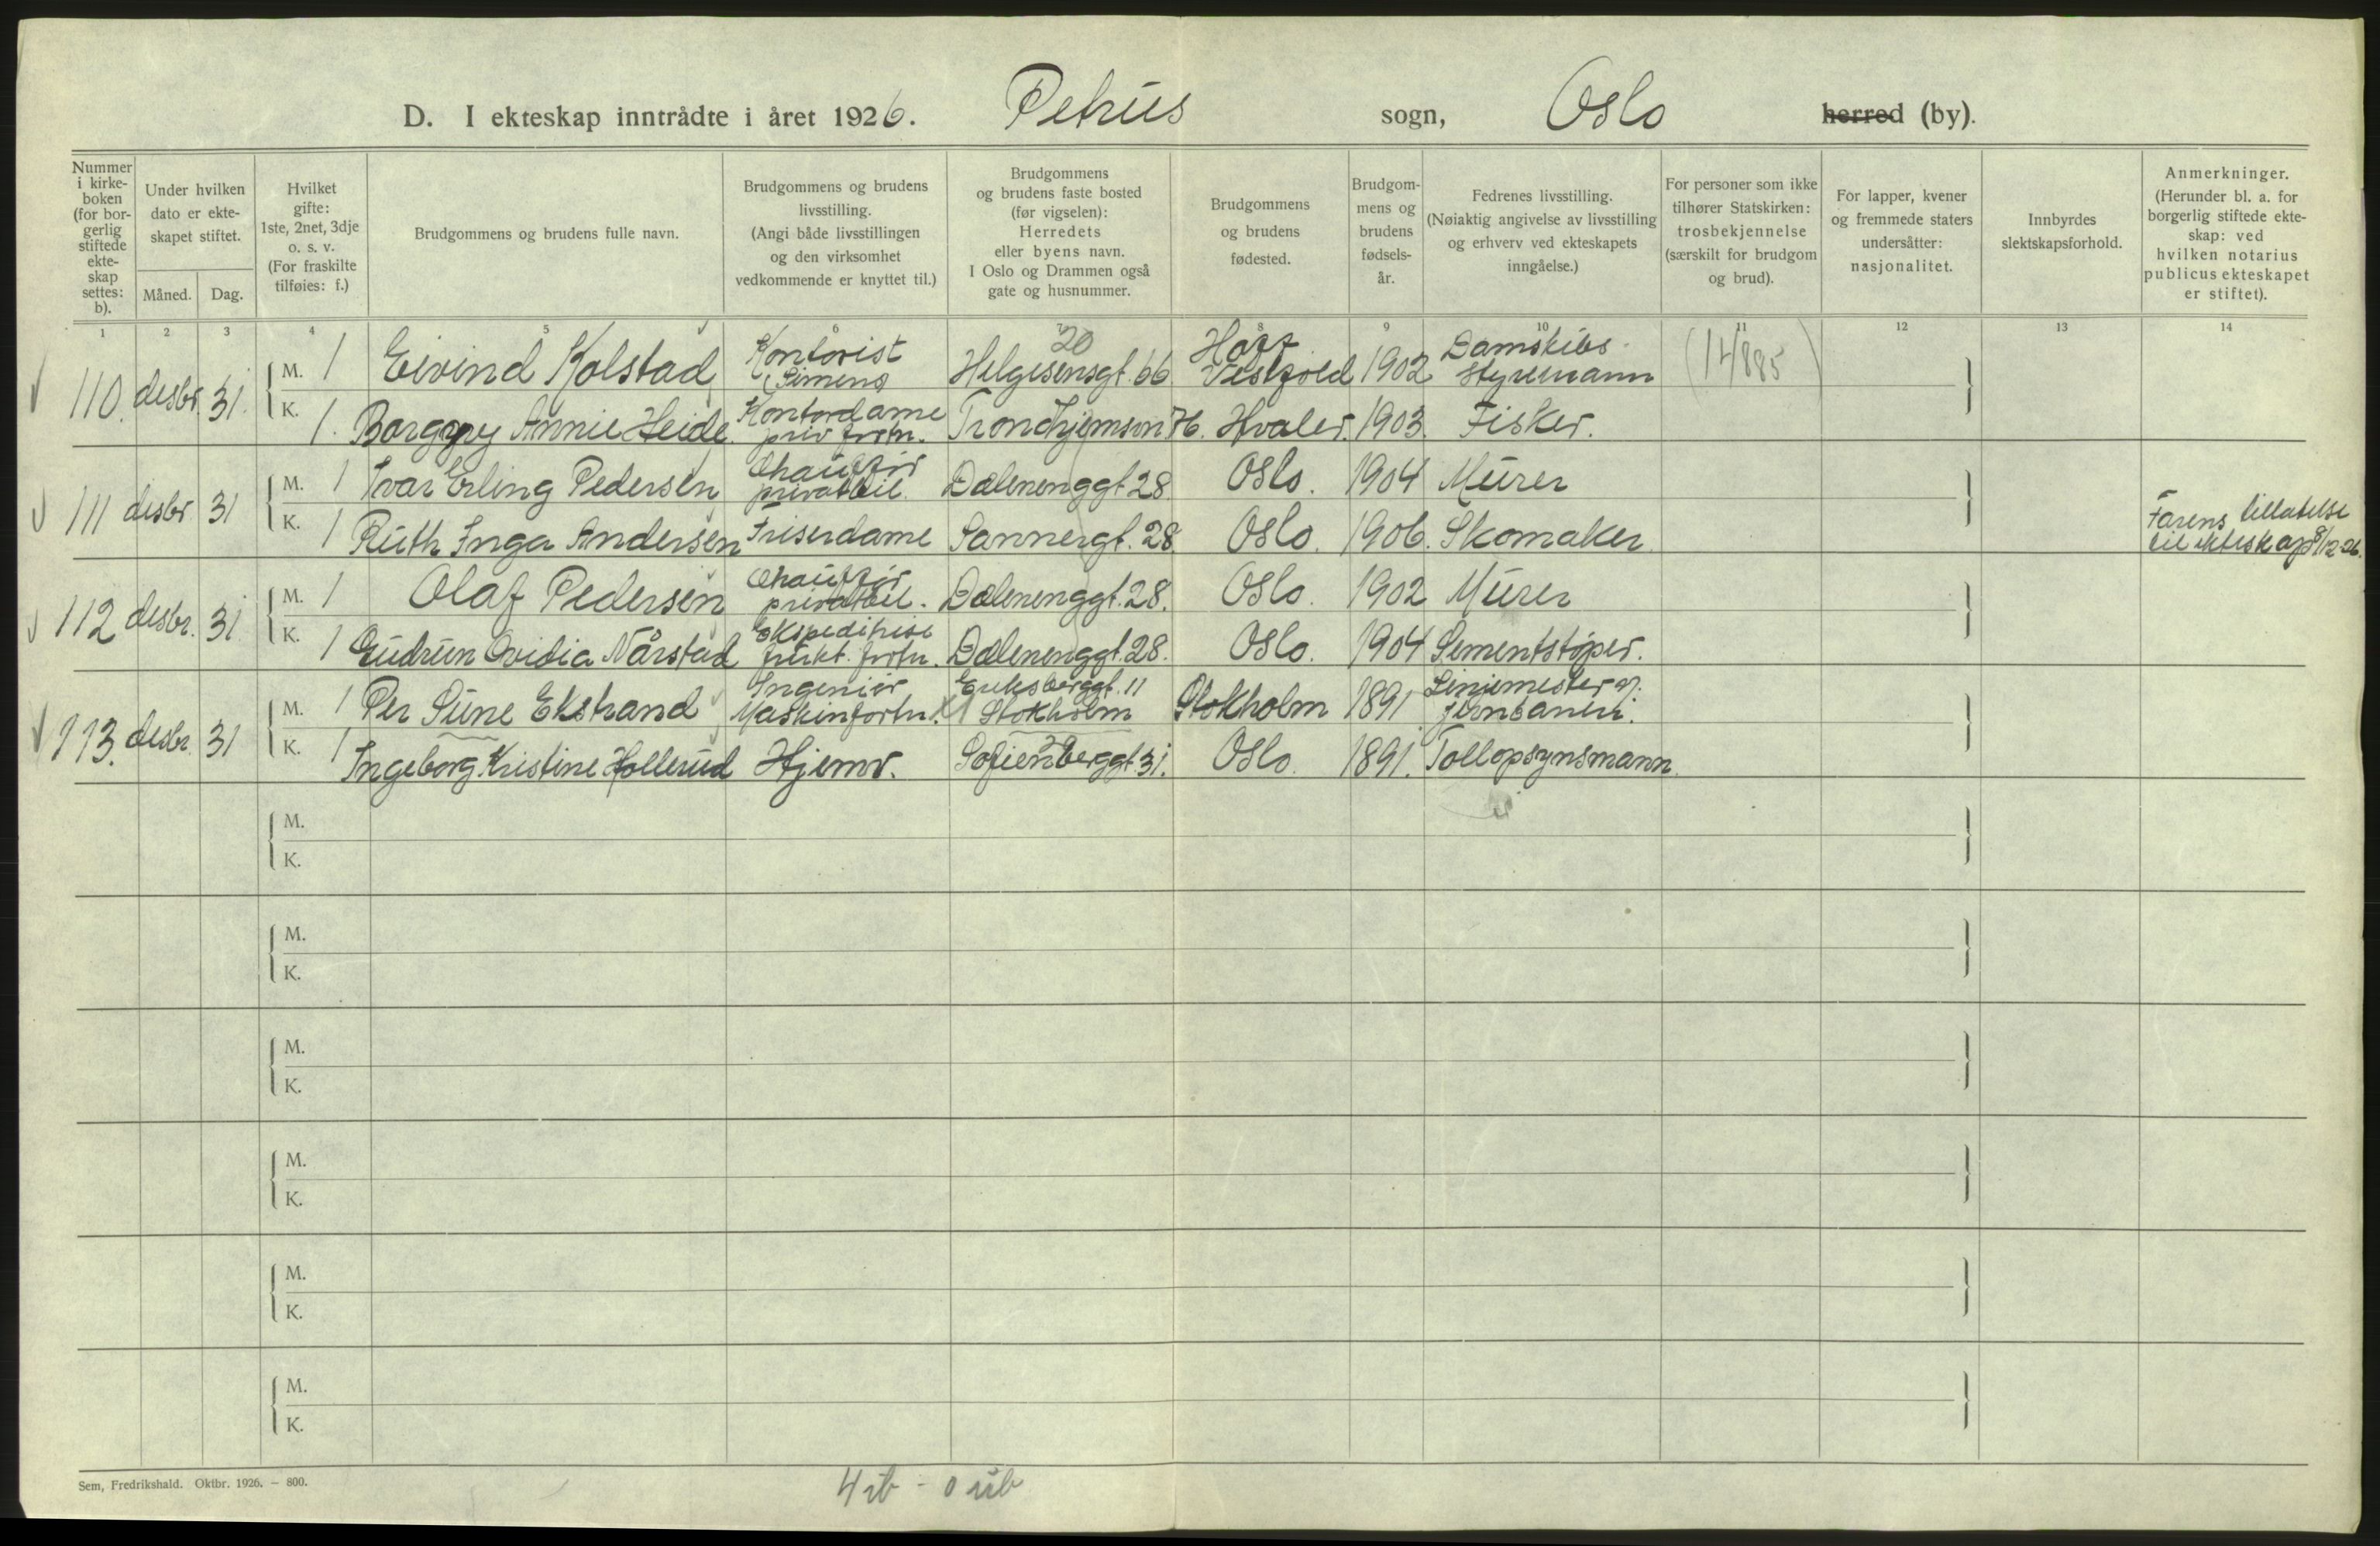 D. I ekteskap inntrådte i året 1926. Petrus sogn, Oslo herred (by).
Nummer i kirke-boken (for bor-gerlig stiftede ekte-skap settes: b).
Under hvilken dato er ekte-skapet stiftet.
Måned. Dag.
Hvilket gifte: 1ste, 2net, 3dje o. s. v. (For fraskilte tilføies: f.)
Brudgommens og brudens fulle navn.
Brudgommens og brudens livsstilling. (Angi både livsstillingen og den virksomhet vedkommende er knyttet til.)
Brudgommens og brudens faste bosted (før vigselen): Herredets eller byens navn. I Oslo og Drammen også gate og husnummer.
Brudgommens og brudens fødested.
Brudgom-mens og brudens fødsels-år.
Fedrenes livsstilling. (Nøiaktig angivelse av livsstilling og erhverv ved ekteskapets inngåelse.)
For personer som ikke tilhører Statskirken: trosbekjennelse (særskilt for brudgom og brud).
For lapper, kvener og fremmede staters undersåtter: nasjonalitet.
Innbyrdes slektskapsforhold.
Anmerkninger. (Herunder bl. a. for borgerlig stiftede ekte-skap: ved hvilken notarius publicus ekteskapet er stiftet).
1 2 3 4 5 6 7 8 9 10 11 12 13 14
110. desbr. 31. M. 1 Eivind Kolstad Kontorist Simens Helgesensgt. 66 20 Hoff Vestfold 1902 Damskibs styremann
K. 1. Borgny Annie Heide. Kontordame priv. forr. Trondhjemsvn 76. Hvaler. 1903. Fisker.
111 desbr 31 M. 1 Ivar Erling Pedersen Chauffør privatbil. Dælenenggt 28. Oslo. 1904 Murer
K. 1 Ruth Inga Andersen Friserdame Sannergt. 28 Oslo. 1906. Skomaker Farens tillatelse til ekteskap 8/12 26.
112 desbr. 31 M. 1 Olaf Pedersen Chauffør privatbil. Dælenenggt. 28. Oslo. 1902 Murer
K. 1 Gudrun Ovidia Nårstad Ekspeditrise frukt. forr. Dælenenggt. 28. Oslo. 1904 Sementstøper.
113. desbr. 31 M. 1 Per Sune Ekstrand Ingeniør Maskinforr. Eriksberggt. 11 Stokholm Stokholm 1891 Liniemester v. jernbanen.
K. 1 Ingeborg Kristine Hollerud Hjemv. Sofienberggt. 31. Oslo. 1891. Tollopsynsmann.
M.
K.
M.
K.
M.
K.
M.
K.
M.
K.
M.
K.
Sem, Fredrikshald. Oktbr. 1926. – 800.